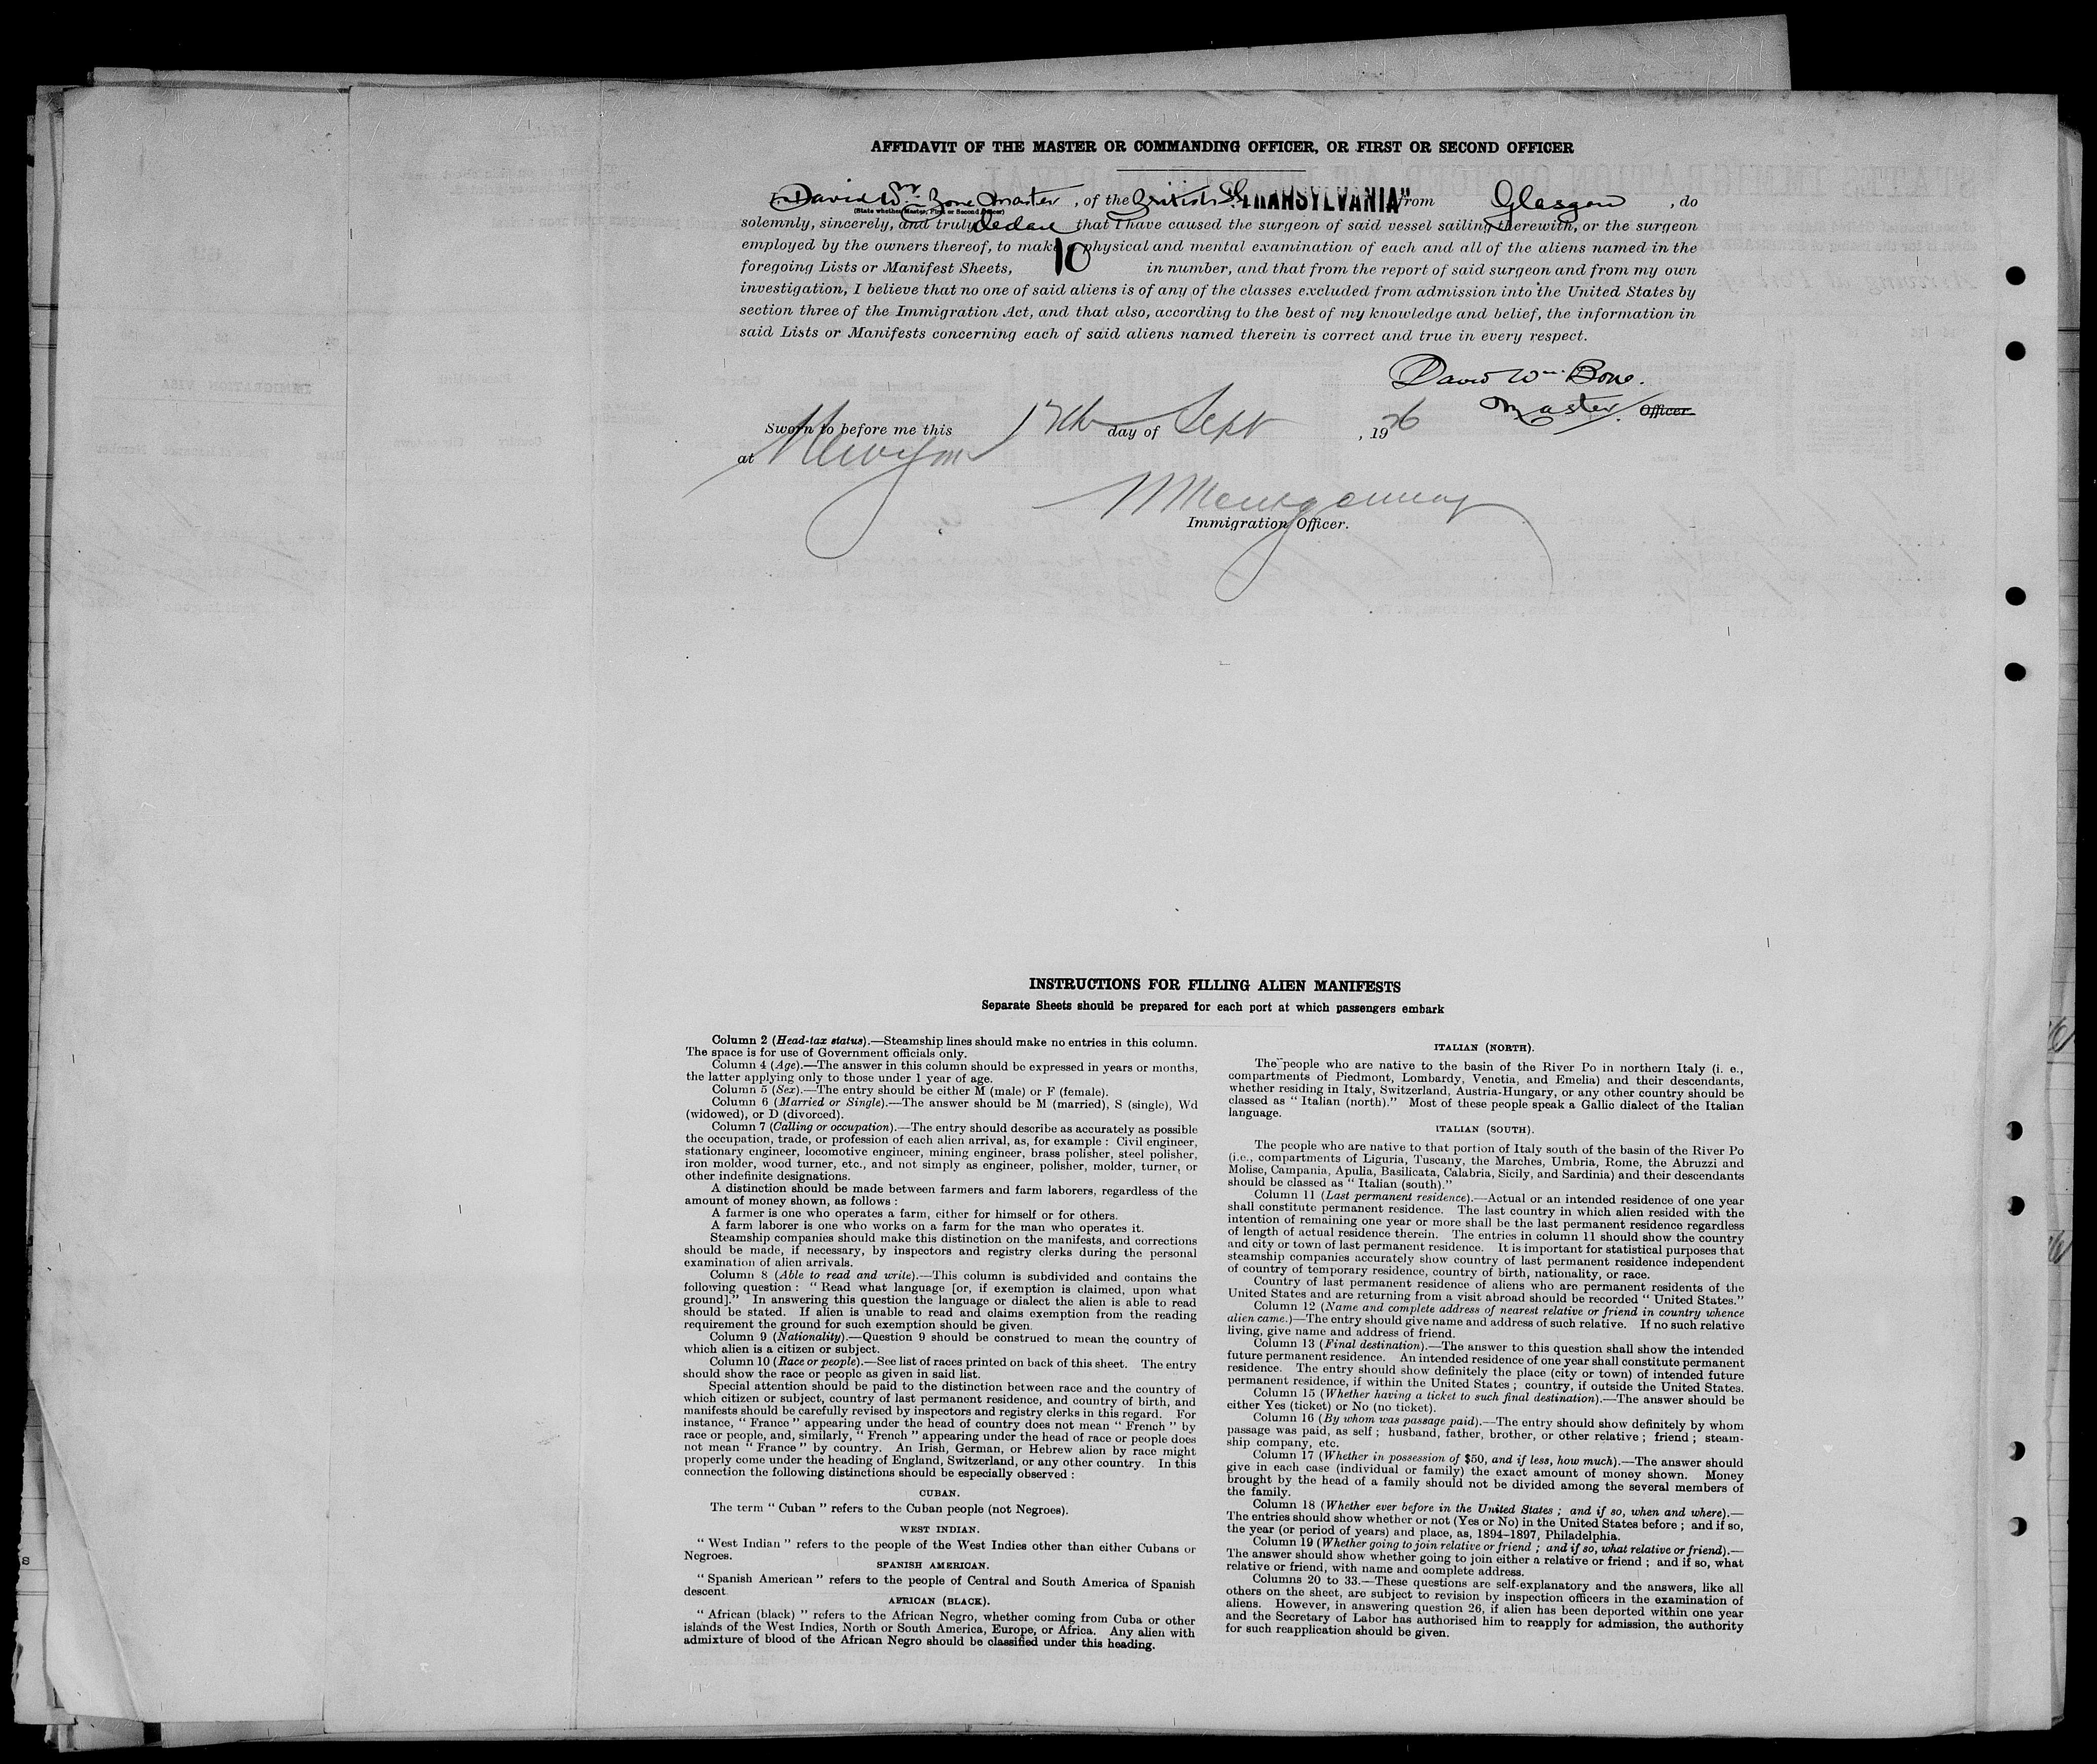 AFFIDAVIT OF THE MASTER OR COMMANDING OFFICER, OR FIRST OR SECOND OFFICER
I, David Wm Bone Master, of the British SS "TRANSYLVANIA" from Glasgow, do
(State whether Master, First or Second Officer)
solemnly, sincerely, and truly declare that I have caused the surgeon of said vessel sailing therewith, or the surgeon
employed by the owners thereof, to make a physical and mental examination of each and all of the aliens named in the
foregoing Lists or Manifest Sheets, 10 in number, and that from the report of said surgeon and from my own
investigation, I believe that no one of said aliens is of any of the classes excluded from admission into the United States by
section three of the Immigration Act, and that also, according to the best of my knowledge and belief, the information in
said Lists or Manifests concerning each of said aliens named therein is correct and true in every respect.
David Wm. Bone.
Master. Officer.
Sworn to before me this 17th day of Sept, 1926
at
Montgomery
Immigration Officer.
INSTRUCTIONS FOR FILLING ALIEN MANIFESTS
Separate Sheets should be prepared for each port at which passengers embark
Column 2 (Head-tax status).—Steamship lines should make no entries in this column.
The space is for use of Government officials only.
Column 4 (Age).—The answer in this column should be expressed in years or months,
the latter applying only to those under 1 year of age.
Column 5 (Sex).—The entry should be either M (male) or F (female).
Column 6 (Married or Single).—The answer should be M (married), S (single), Wd
(widowed), or D (divorced).
Column 7 (Calling or occupation).—The entry should describe as accurately as possible
the occupation, trade, or profession of each alien arrival, as, for example : Civil engineer,
stationary engineer, locomotive engineer, mining engineer, brass polisher, steel polisher,
iron molder, wood turner, etc., and not simply as engineer, polisher, molder, turner, or
other indefinite designations.
A distinction should be made between farmers and farm laborers, regardless of the
amount of money shown, as follows :
A farmer is one who operates a farm, either for himself or for others.
A farm laborer is one who works on a farm for the man who operates it.
Steamship companies should make this distinction on the manifests, and corrections
should be made, if necessary, by inspectors and registry clerks during the personal
examination of alien arrivals.
Column 8 (Able to read and write).—This column is subdivided and contains the
following question : " Read what language [or, if exemption is claimed, upon what
ground]." In answering this question the language or dialect the alien is able to read
should be stated. If alien is unable to read and claims exemption from the reading
requirement the ground for such exemption should be given.
Column 9 (Nationality).—Question 9 should be construed to mean the country of
which alien is a citizen or subject.
Column 10 (Race or people).—See list of races printed on back of this sheet. The entry
should show the race or people as given in said list.
Special attention should be paid to the distinction between race and the country of
which citizen or subject, country of last permanent residence, and country of birth, and
manifests should be carefully revised by inspectors and registry clerks in this regard. For
instance, " France " appearing under the head of country does not mean " French " by
race or people, and, similarly, " French " appearing under the head of race or people does
not mean " France " by country. An Irish, German, or Hebrew alien by race might
properly come under the heading of England, Switzerland, or any other country. In this
connection the following distinctions should be especially observed :
CUBAN.
The term " Cuban " refers to the Cuban people (not Negroes).
WEST INDIAN.
" West Indian " refers to the people of the West Indies other than either Cubans or
Negroes.
SPANISH AMERICAN.
" Spanish American " refers to the people of Central and South America of Spanish
descent
AFRICAN (BLACK).
" African (black) " refers to the African Negro, whether coming from Cuba or other
islands of the West Indies, North or South America, Europe, or Africa. Any alien with
admixture of blood of the African Negro should be classified under this heading.
ITALIAN (NORTH).
The people who are native to the basin of the River Po in northern Italy (i. e.,
compartments of Piedmont, Lombardy, Venetia, and Emelia) and their descendants,
whether residing in Italy, Switzerland, Austria-Hungary, or any other country should be
classed as " Italian (north)." Most of these people speak a Gallic dialect of the Italian
language.
ITALIAN (SOUTH).
The people who are native to that portion of Italy south of the basin of the River Po
(i.e., compartments of Liguria, Tuscany, the Marches, Umbria, Rome, the Abruzzi and
Molise, Campania, Apulia, Basilicata, Calabria, Sicily, and Sardinia) and their descendants
should be classed as " Italian (south)."
Column 11 (Last permanent residence).—Actual or an intended residence of one year
shall constitute permanent residence. The last country in which alien resided with the
intention of remaining one year or more shall be the last permanent residence regardless
of length of actual residence therein. The entries in column 11 should show the country
and city or town of last permanent residence. It is important for statistical purposes that
steamship companies accurately show country of last permanent residence independent
of country of temporary residence, country of birth, nationality, or race.
Country of last permanent residence of aliens who are permanent residents of the
United States and are returning from a visit abroad should be recorded " United States."
Column 12 (Name and complete address of nearest relative or friend in country whence
alien came.)—The entry should give name and address of such relative. If no such relative
living, give name and address of friend.
Column 13 (Final destination).—The answer to this question shall show the intended
future permanent residence. An intended residence of one year shall constitute permanent
residence. The entry should show definitely the place (city or town) of intended future
permanent residence, if within the United States ; country, if outside the United States.
Column 15 (Whether having a ticket to such final destination).—The answer should be
either Yes (ticket) or No (no ticket).
Column 16 (By whom was passage paid).—The entry should show definitely by whom
passage was paid, as self ; husband, father, brother, or other relative ; friend ; steam-
ship company, etc.
Column 17 (Whether in possession of $50, and if less, how much).—The answer should
give in each case (individual or family) the exact amount of money shown. Money
brought by the head of a family should not be divided among the several members of
the family.
Column 18 (Whether ever before in the United States ; and if so, when and where).—
The entries should show whether or not (Yes or No) in the United States before ; and if so,
the year (or period of years) and place, as, 1894–1897, Philadelphia.
Column 19 (Whether going to join relative or friend ; and if so, what relative or friend).—
The answer should show whether going to join either a relative or friend ; and if so, what
relative or friend, with name and complete address.
Columns 20 to 33.—These questions are self-explanatory and the answers, like all
others on the sheet, are subject to revision by inspection officers in the examination of
aliens. However, in answering question 26, if alien has been deported within one year
and the Secretary of Labor has authorised him to reapply for admission, the authority
for such reapplication should be given.